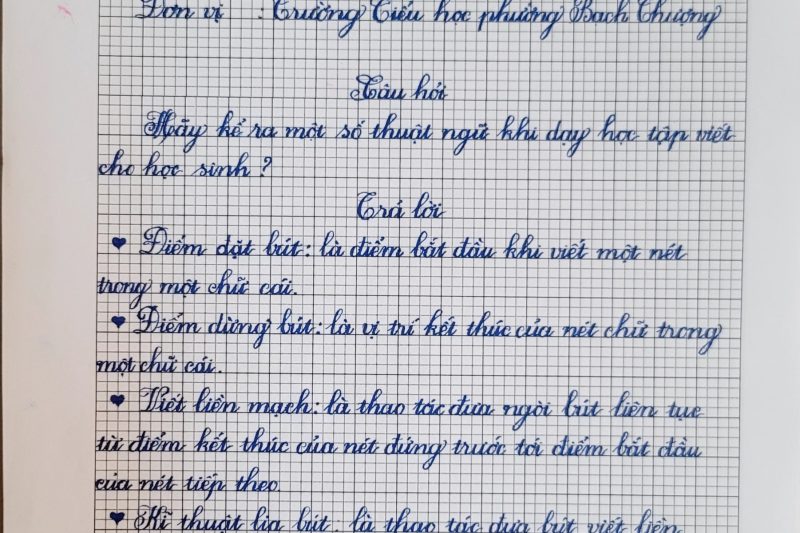 Đơn vị : Trường Tiểu học phường Bạch Thượng
Câu hỏi
Hãy kể ra một số thuật ngữ khi dạy học tập viết
cho học sinh ?
Trả lời
♥ Điểm đặt bút: là điểm bắt đầu khi viết một nét
trong một chữ cái.
♥ Điểm dừng bút: là vị trí kết thúc của nét chữ trong
một chữ cái.
♥ Viết liền mạch: là thao tác đưa ngòi bút liên tục
từ điểm kết thúc của nét đứng trước tới điểm bắt đầu
của nét tiếp theo.
♥ Kĩ thuật lia bút: là thao tác đưa bút viết liền